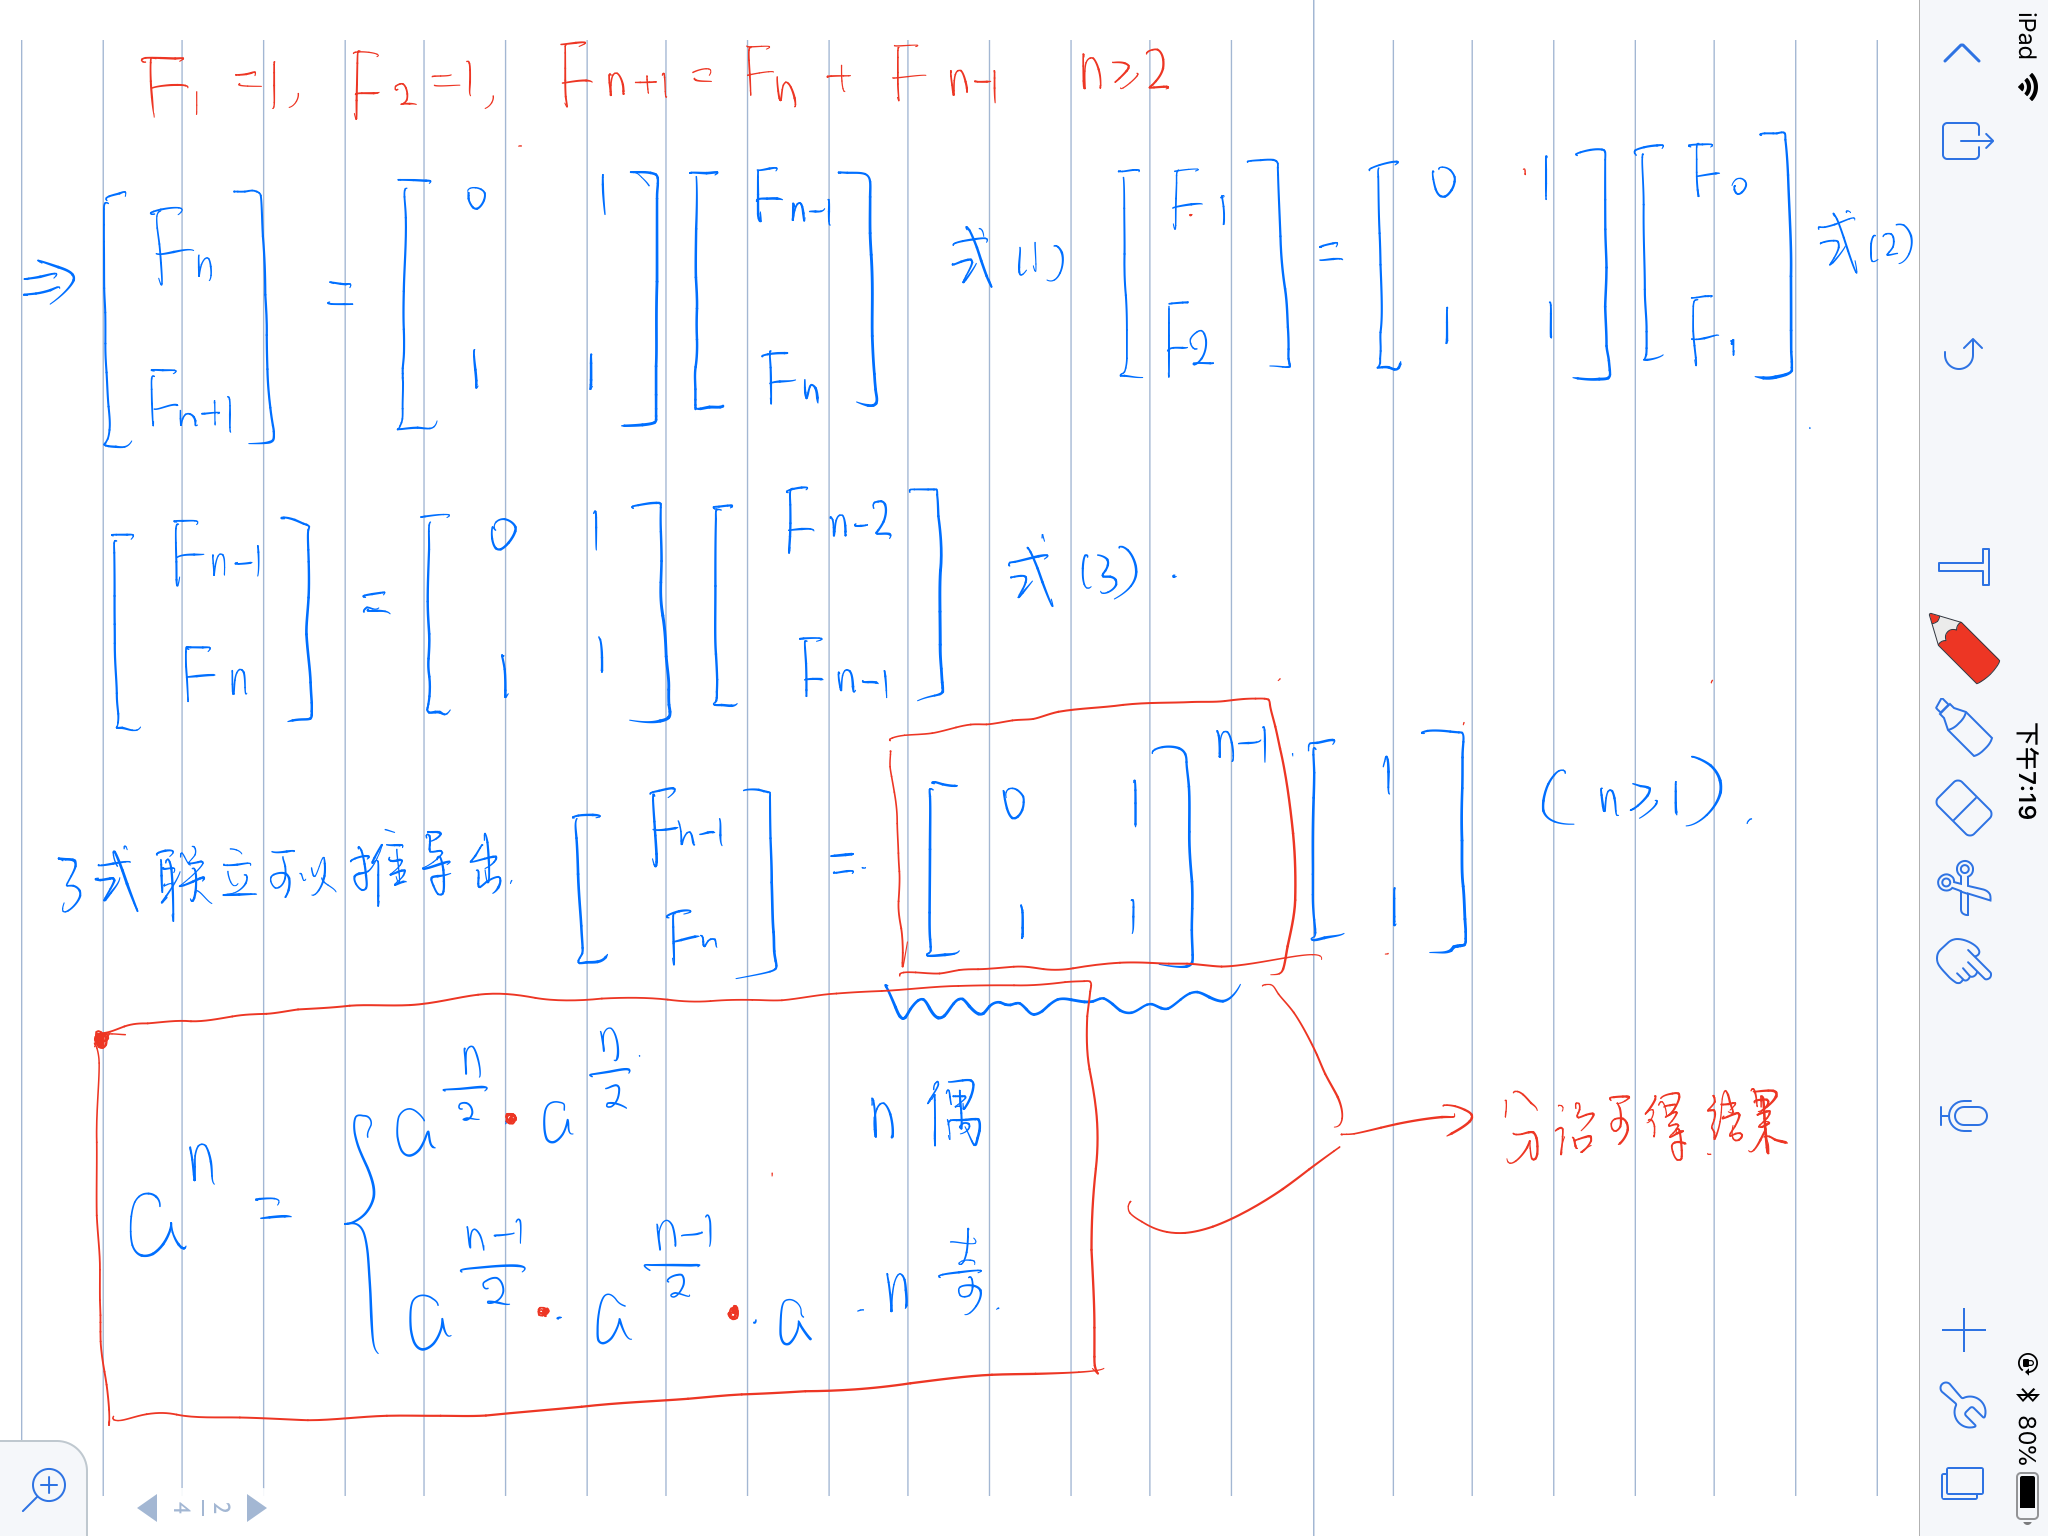 F₁ =1, F₂ =1, Fn+1 = Fn + Fn-1 n≥2
⇒ [Fn Fn+1] = [0 1 1 1] [Fn-1 Fn] 式(1) [F1 F2] = [0 1 1 1] [F0 F1] 式(2)
[Fn-1 Fn] = [0 1 1 1] [Fn-2 Fn-1] 式(3).
3式联立可以推导出. [Fn-1 Fn] = [0 1 1 1]^n-1 · [1 1] (n≥1).
a^n = { a^(n/2) · a^(n/2) n 偶
a^((n-1)/2) · a^((n-1)/2) · a n 奇.
分治可得结果
iPad
下午7:19
80%
2 | 4